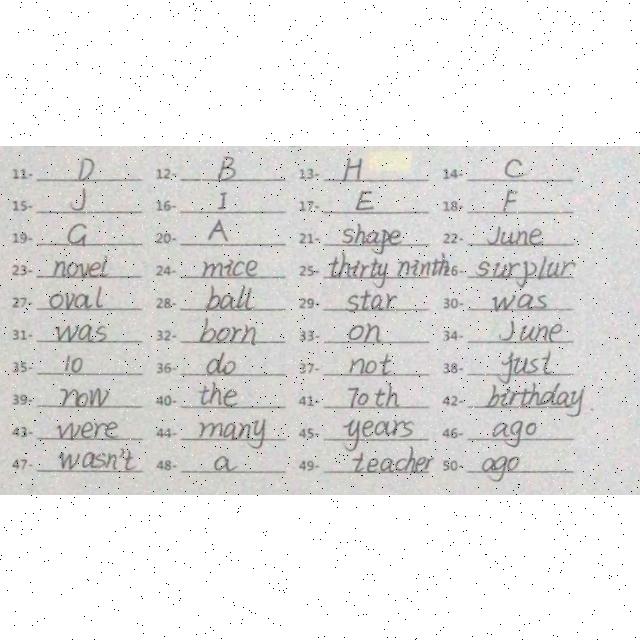 11- D 12- B 13- H 14- C
15- J 16- I 17- E 18- F
19- G 20- A 21- shape 22- June
23- novel 24- mice 25- thirty ninth 26- surplur
27- oval 28- ball 29- star 30- was
31- was 32- born 33- on 34- June
35- 10 36- do 37- not 38- just
39- now 40- the 41- 70th 42- birthday
43- were 44- many 45- years 46- ago
47- wasn't 48- a 49- teacher 50- ago